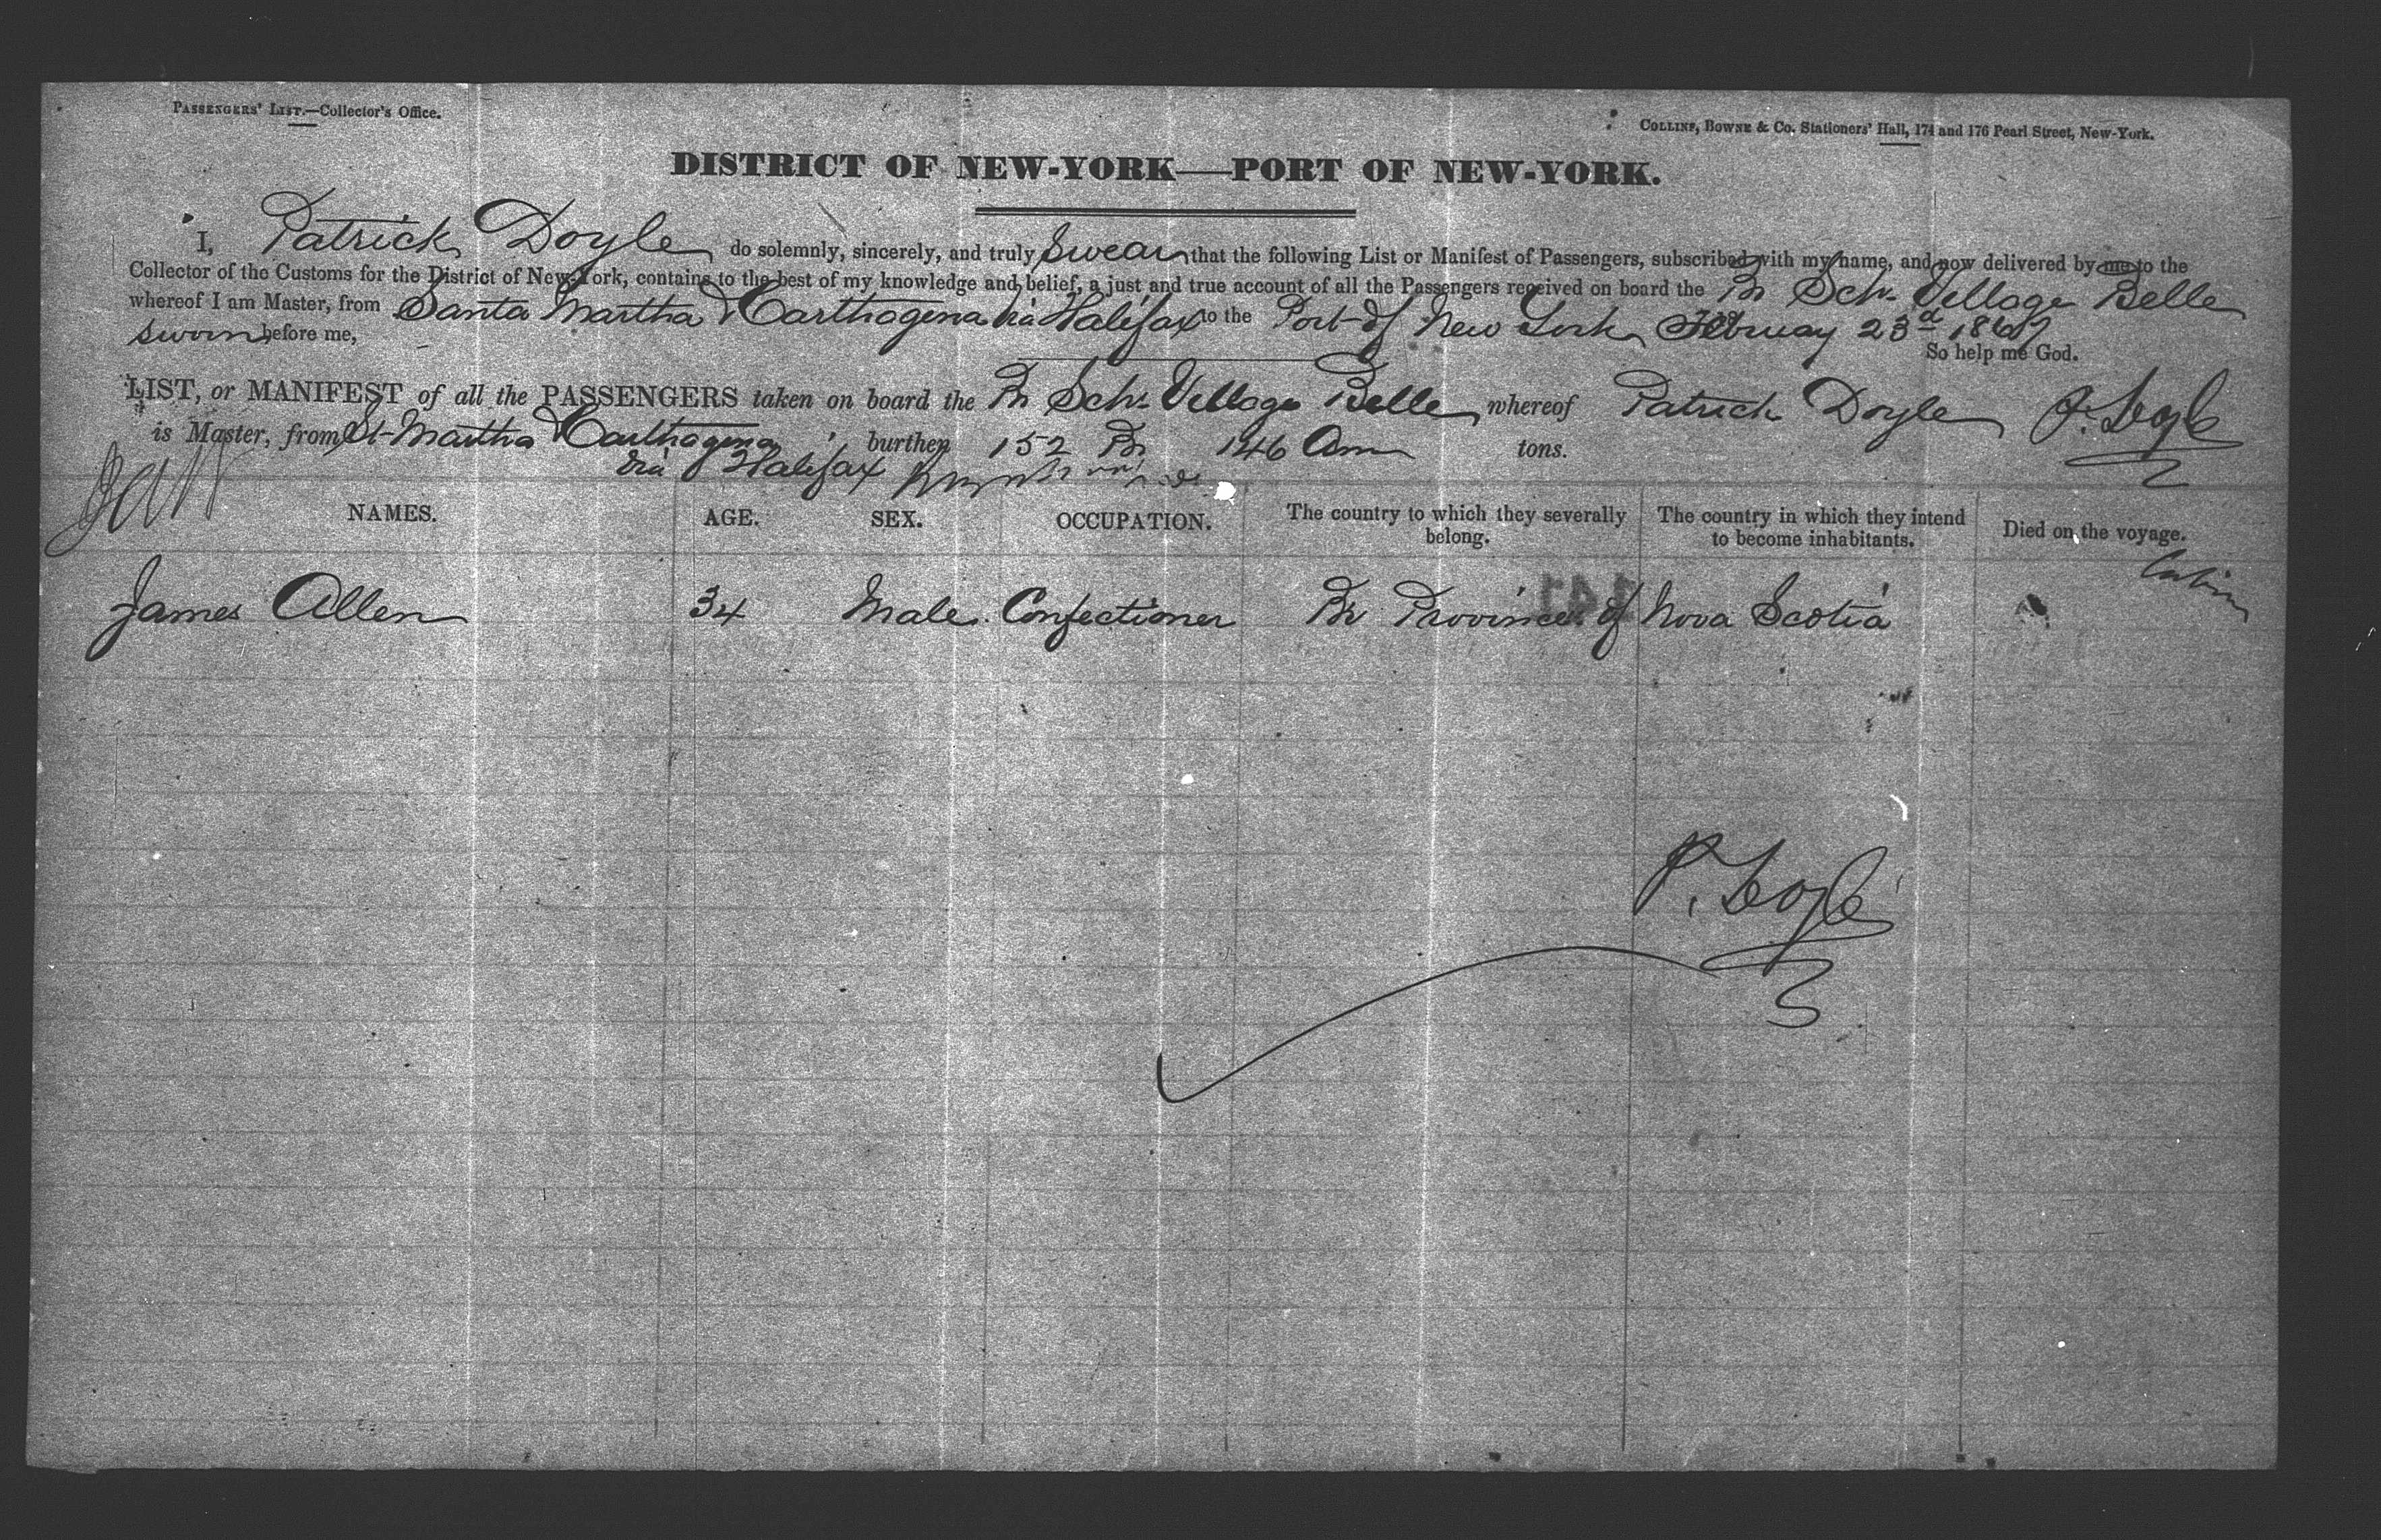 PASSENGERS' LIST.—Collector's Office.
COLLINS, BOWNE & Co. Stationers' Hall, 174 and 176 Pearl Street, New-York.
DISTRICT OF NEW-YORK—PORT OF NEW-YORK.
I, Patrick Doyle do solemnly, sincerely, and truly Swear that the following List or Manifest of Passengers, subscribed with my name, and now delivered by me to the
Collector of the Customs for the District of New-York, contains to the best of my knowledge and belief, a just and true account of all the Passengers received on board the Br Schr Village Belle
whereof I am Master, from Santa Martha & Carthagena via Halifax to the Port of New York February 23d
Sworn before me,
So help me God.
LIST, or MANIFEST of all the PASSENGERS taken on board the Br Schr Village Belle whereof Patrick Doyle P. Doyle
is Master, from St Martha & Carthagena burthen 152 Br 146 Am tons.
via Halifax
NAMES. AGE. SEX. OCCUPATION. The country to which they severally belong. The country in which they intend to become inhabitants. Died on the voyage.
James Allen 34 Male Confectioner Br Province of Nova Scotia
141
P. Doyle